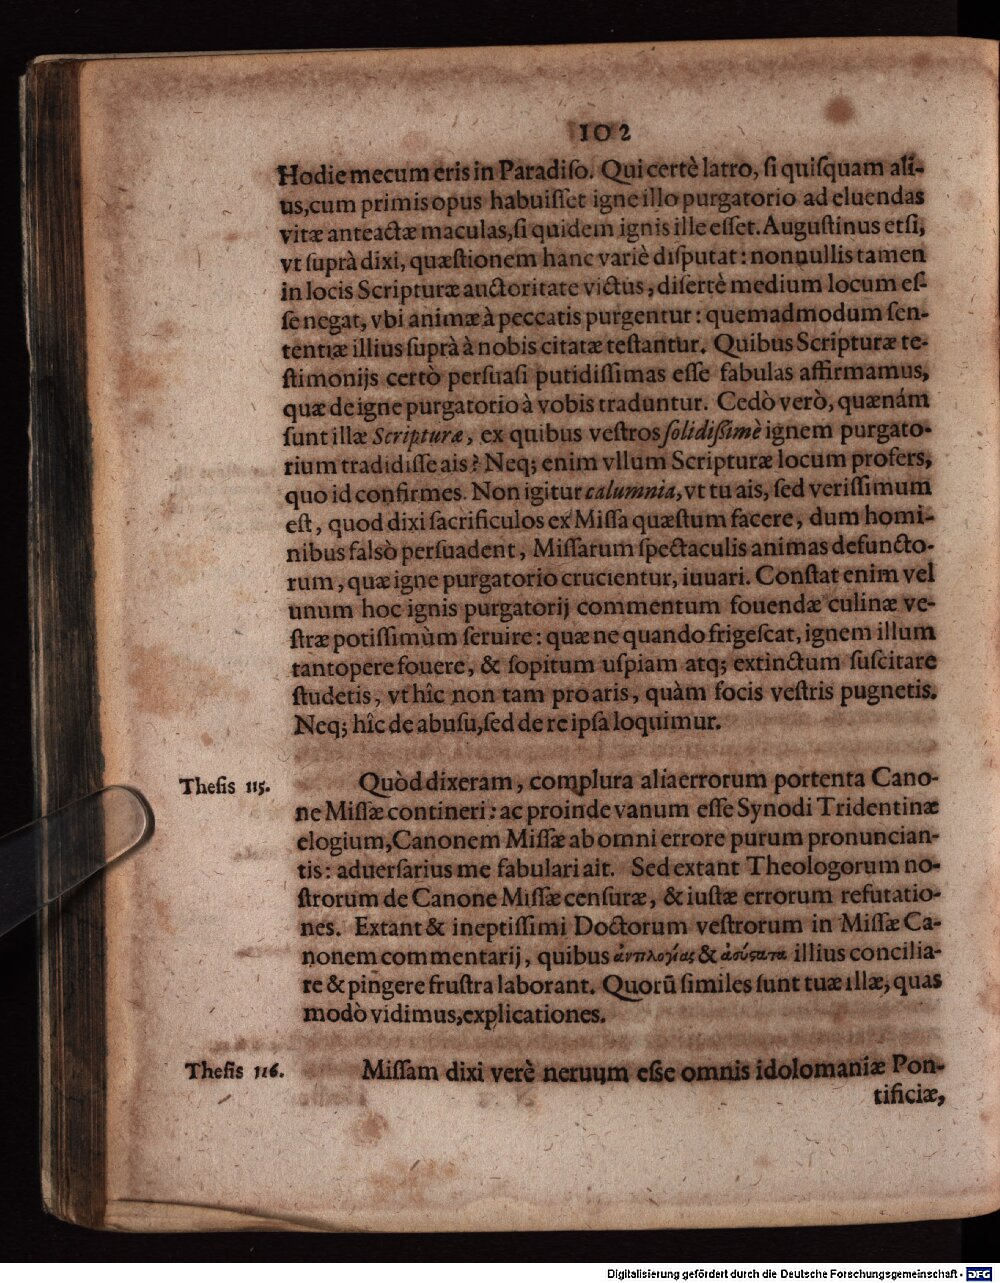 102
Hodie mecum eris in Paradiso. Qui certè latro, si quisquam ali-
us, cum primis opus habuisset igne illo purgatorio ad eluendas
vitæ anteactæ maculas, si quidem ignis ille esset. Augustinus etsi,
vt suprà dixi, quæstionem hanc variè disputat: nonnullis tamen
in locis Scripturæ auctoritate victus, disertè medium locum es-
se negat, vbi animæ à peccatis purgentur: quemadmodum sen-
tentiæ illius suprà à nobis citatæ testantur. Quibus Scripturæ te-
stimonijs certò persuasi putidissimas esse fabulas affirmamus,
quæ de igne purgatorio à vobis traduntur. Cedò verò, quænám
sunt illæ Scripturæ, ex quibus vestros solidissimè ignem purgato-
rium tradidisse ais? Neq; enim vllum Scripturæ locum profers,
quo id confirmes. Non igitur calumnia, vt tu ais, sed verissimum
est, quod dixi sacrificulos ex Missa quæstum facere, dum homi-
nibus falsò persuadent, Missarum spectaculis animas defuncto-
rum, quæ igne purgatorio crucientur, iuuari. Constat enim vel
unum hoc ignis purgatorij commentum fouendæ culinæ ve-
stræ potissimùm seruire: quæ ne quando frigescat, ignem illum
tantopere fouere, & sopitum uspiam atq; extinctum suscitare
studetis, vt hîc non tam pro aris, quàm focis vestris pugnetis.
Neq; hîc de abusu, sed de re ipsa loquimur.
Thesis 115.
Quòd dixeram, complura alia errorum portenta Cano-
ne Missæ contineri: ac proinde vanum esse Synodi Tridentinæ
elogium, Canonem Missæ ab omni errore purum pronuncian-
tis: aduersarius me fabulari ait. Sed extant Theologorum no-
strorum de Canone Missæ censuræ, & iustæ errorum refutatio-
nes. Extant & ineptissimi Doctorum vestrorum in Missæ Ca-
nonem commentarij, quibus ἀντιλογίας & ἀσύςατα illius concilia-
re & pingere frustra laborant. Quorũ similes sunt tuæ illæ, quas
modò vidimus, explicationes.
Thesis 116.
Missam dixi verè neruum esse omnis idolomaniæ Pon-
tificiæ,
Digitalisierung gefördert durch die Deutsche Forschungsgemeinschaft - DFG